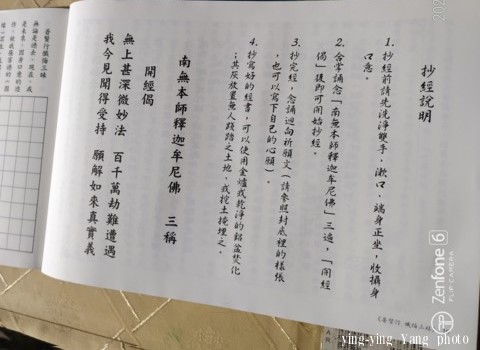 抄經說明
1. 抄經前請先洗淨雙手、漱口、端身正坐,收攝身
口意。
2. 合掌誦念「南無本師釋迦牟尼佛」三遍,「開經
偈」後即可開始抄經。
3. 抄完經,念誦迴向祈願文(請參照封底裡的樣張
,也可以寫下自己的心願)。
4. 抄寫好的經書,可以使用金爐或乾淨的鋁盆焚化
;其灰放置無人踐踏之土地,或挖土掩埋之。
南無本師釋迦牟尼佛 三稱
開經偈
無上甚深微妙法 百千萬劫難遭遇
我今見聞得受持 願解如來真實義
普賢行懺悔三昧
Zenfone 6
FLIP CAMERA
ying-ying Yang photo